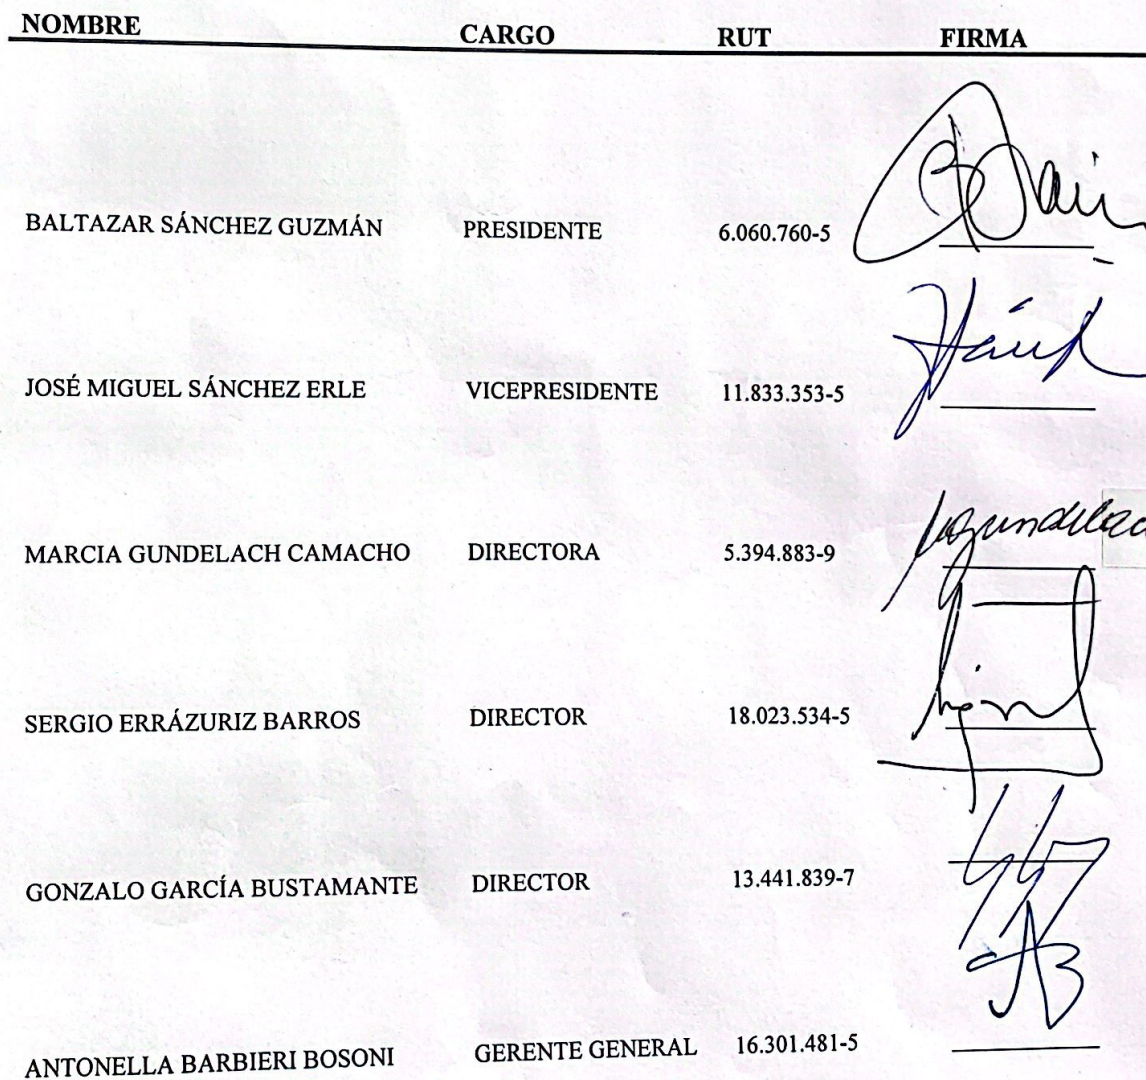 NOMBRE CARGO RUT FIRMA
BALTAZAR SÁNCHEZ GUZMÁN PRESIDENTE 6.060.760-5
JOSÉ MIGUEL SÁNCHEZ ERLE VICEPRESIDENTE 11.833.353-5
MARCIA GUNDELACH CAMACHO DIRECTORA 5.394.883-9
SERGIO ERRÁZURIZ BARROS DIRECTOR 18.023.534-5
GONZALO GARCÍA BUSTAMANTE DIRECTOR 13.441.839-7
ANTONELLA BARBIERI BOSONI GERENTE GENERAL 16.301.481-5